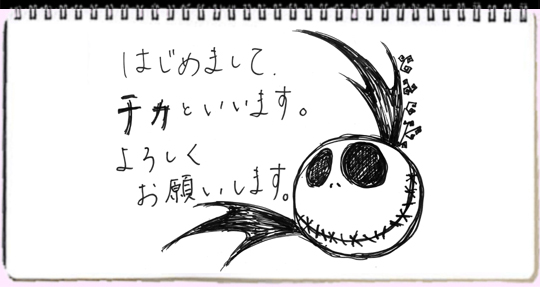 はじめまして、
チカといいます。
よろしく
お願いします。